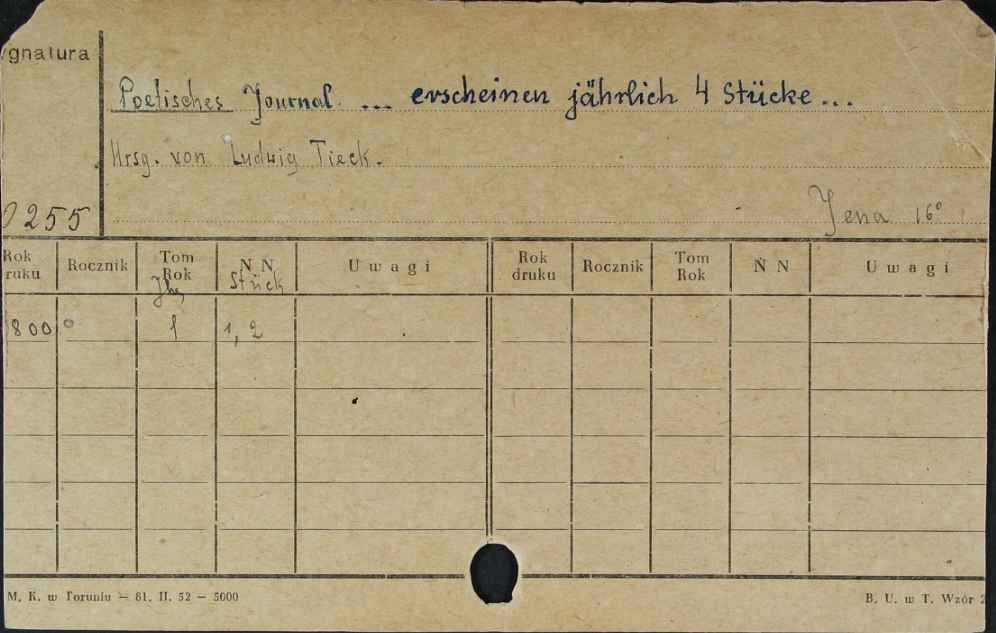 gnatura
Poetisches Journal. ... erscheinen jährlich 4 Stücke...
Hrsg. von Ludwig Tieck.
0255
Jena 16°
Rok ruku Rocznik Tom Rok N N Uwagi Rok druku Rocznik Tom Rok N N Uwagi
Stück
800 1 1, 2
M. K. w Toruniu — 81. II. 52 — 5000
B. U. w T. Wzór 2